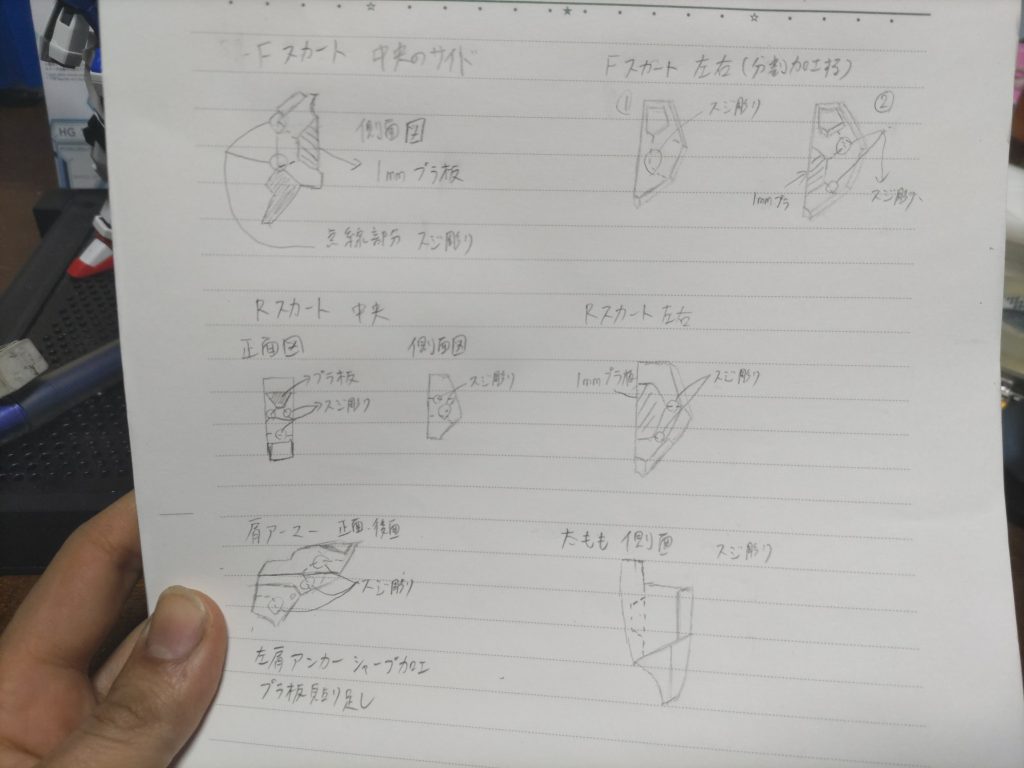 Fスカート 中央のサイド
側面図
1mm プラ板
点線部分 スジ彫り
Fスカート 左右(分割加工する)
①
スジ彫り
②
1mmプラ
スジ彫り
Rスカート 中央
正面図
プラ板
スジ彫り
側面図
スジ彫り
Rスカート 左右
1mmプラ板
スジ彫り
肩アーマー 正面・後面
スジ彫り
左肩アンカー シャープ加工
プラ板貼り足し
太もも 側面 スジ彫り
HG